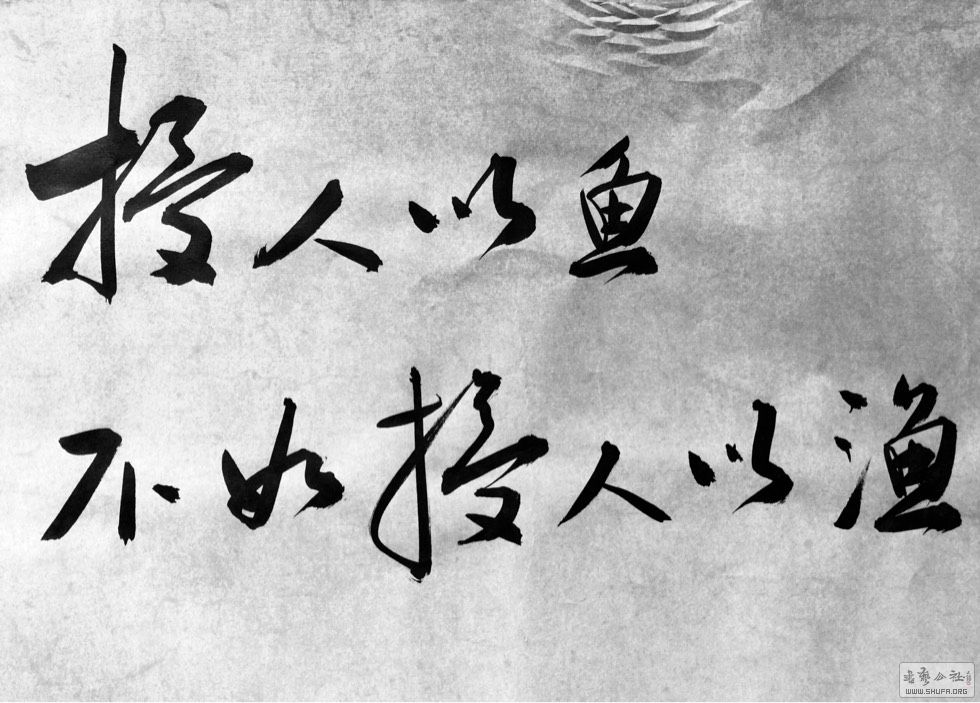 授人以鱼
不如授人以渔
WWW.SHUFA.ORG